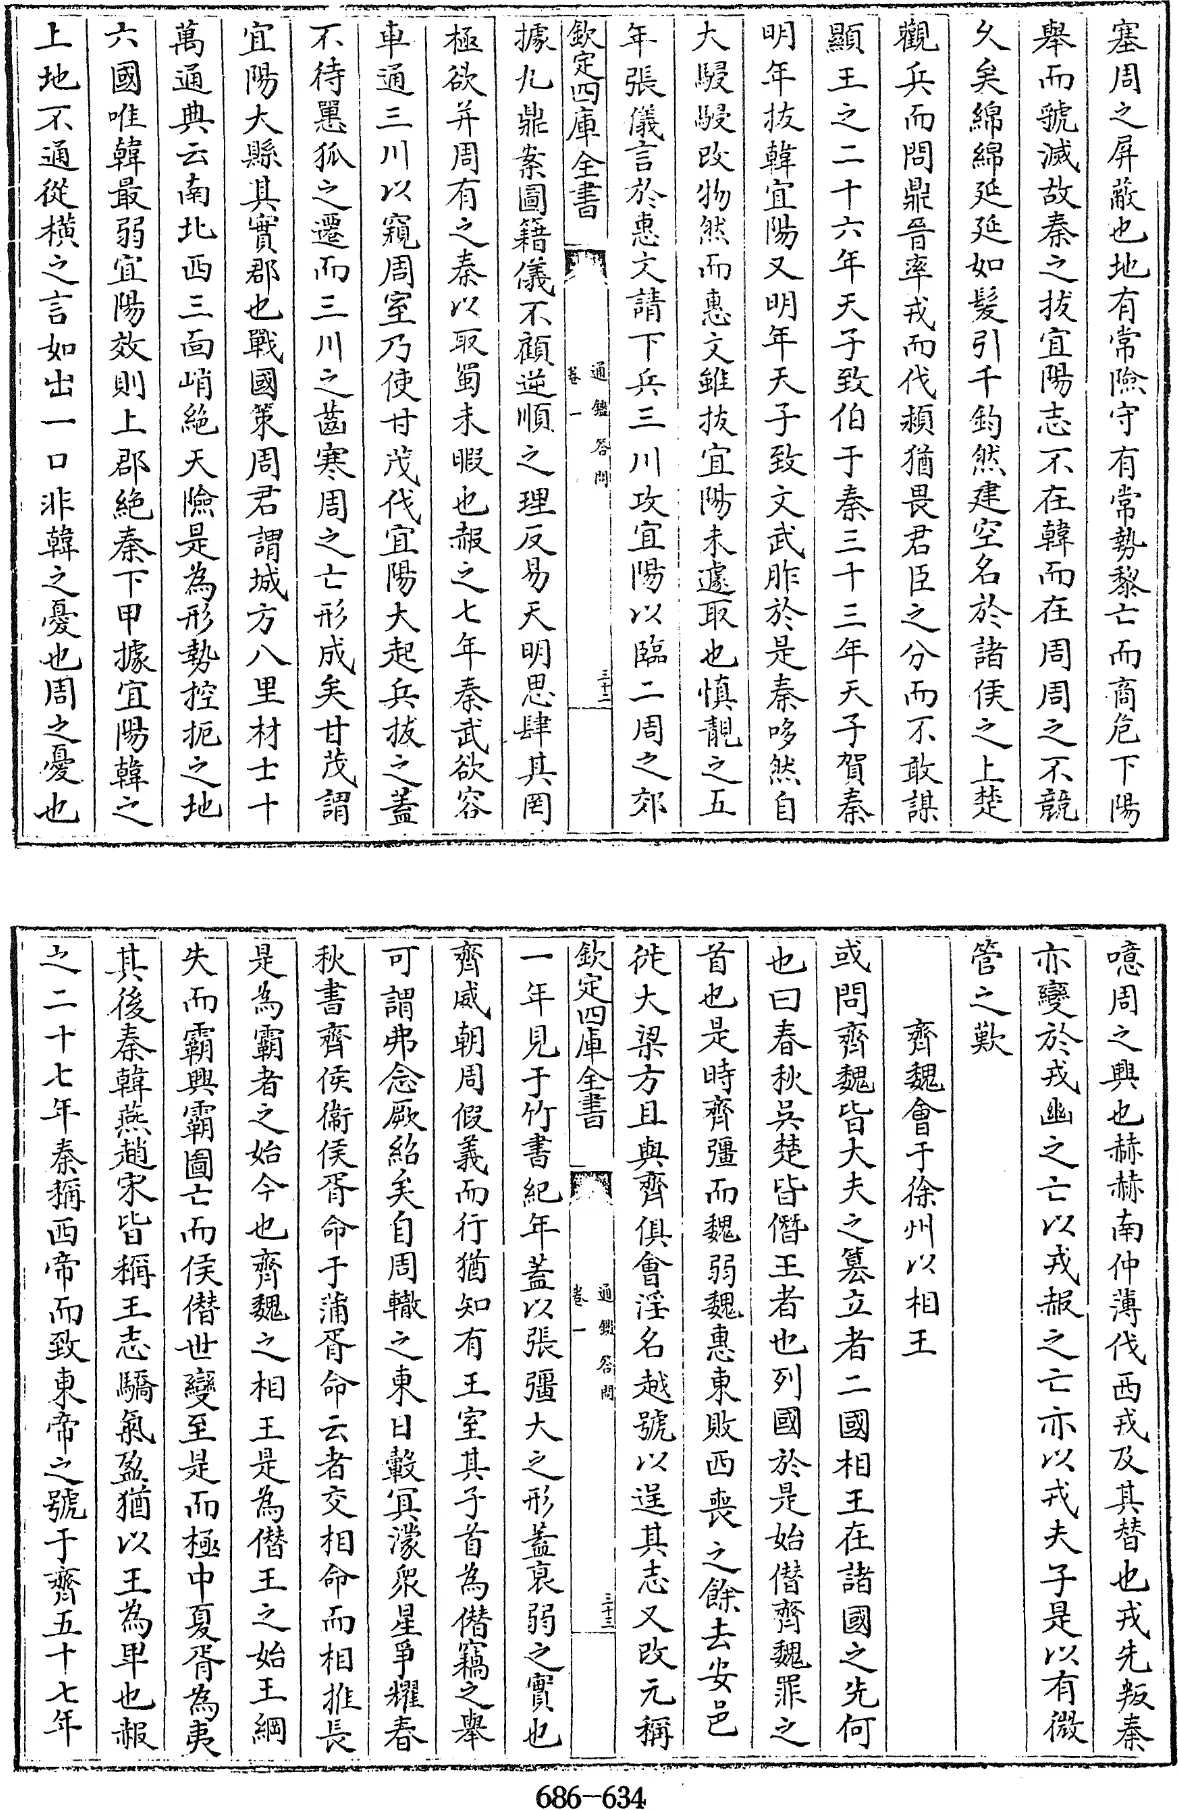 塞周之屏蔽也地有常險守有常勢黎亡而商危下陽
舉而虢滅故秦之拔宜陽志不在韓而在周周之不競
久矣綿綿延延如髮引千鈞然建空名於諸侯之上楚
觀兵而問鼎晉率戎而伐潁猶畏君臣之分而不敢謀
顯王之二十六年天子致伯于秦三十三年天子賀秦
明年拔韓宜陽又明年天子致文武胙於是秦哆然自
大駸駸改物然而惠文雖拔宜陽未遽取也慎靚之五
年張儀言於惠文請下兵三川攻宜陽以臨二周之郊
欽定四庫全書
通鑑答問
卷一
三十二
據九鼎案圖籍儀不顧逆順之理反易天明思肆其罔
極欲并周有之秦以取蜀未暇也赧之七年秦武欲容
車通三川以窺周室乃使甘茂伐宜陽大起兵拔之蓋
不待𢠸狐之遷而三川之齒寒周之亡形成矣甘茂謂
宜陽大縣其實郡也戰國策周君謂城方八里材士十
萬通典云南北西三面峭絶天險是為形勢控扼之地
六國唯韓最弱宜陽效則上郡絶秦下甲據宜陽韓之
上地不通從橫之言如出一口非韓之憂也周之憂也
噫周之興也赫赫南仲薄伐西戎及其替也戎先叛秦
亦變於戎幽之亡以戎赧之亡亦以戎夫子是以有微
管之歎
齊魏會于徐州以相王
或問齊魏皆大夫之簒立者二國相王在諸國之先何
也曰春秋吳楚皆僭王者也列國於是始僭齊魏罪之
首也是時齊彊而魏弱魏惠東敗西喪之餘去安邑
徙大梁方且與齊俱會淫名越號以逞其志又改元稱
欽定四庫全書
通鑑答問
卷一
三十三
一年見于竹書紀年蓋以張彊大之形蓋衰弱之實也
齊威朝周假義而行猶知有王室其子首為僭竊之舉
可謂弗念厥紹矣自周轍之東日轂冥濛衆星爭耀春
秋書齊侯衞侯胥命于蒲胥命云者交相命而相推長
是為霸者之始今也齊魏之相王是為僭王之始王綱
失而霸興霸圖亡而侯僭世變至是而極中夏胥為夷
其後秦韓燕趙宋皆稱王志驕氣盈猶以王為卑也赧
之二十七年秦稱西帝而致東帝之號于齊五十七年
686-634